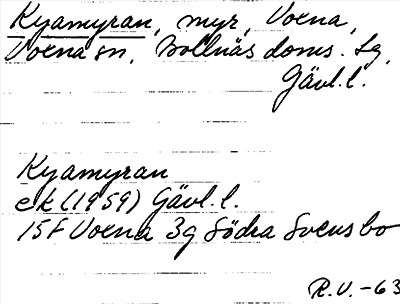 Kyamyran, myr, Voxna,
Voxna sn, Bollnäs doms. sg,
Gävl. l.
Kyamyran
ek (1959) Gävl. l.
15F Voxna 3g Södra Svensbo
R.V. -63